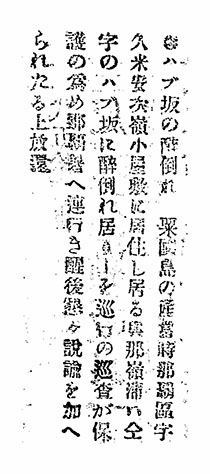 ●ハブ坂の醉倒れ 粟國島の産當時那覇區字
久米安次嶺小屋敷に居住し居る與那嶺蒲ハ仝
字のハブ坂に醉倒れ居りしを巡行の巡査が保
護の爲め那覇署へ連行き醒後懇々説諭を加へ
られたる上放還